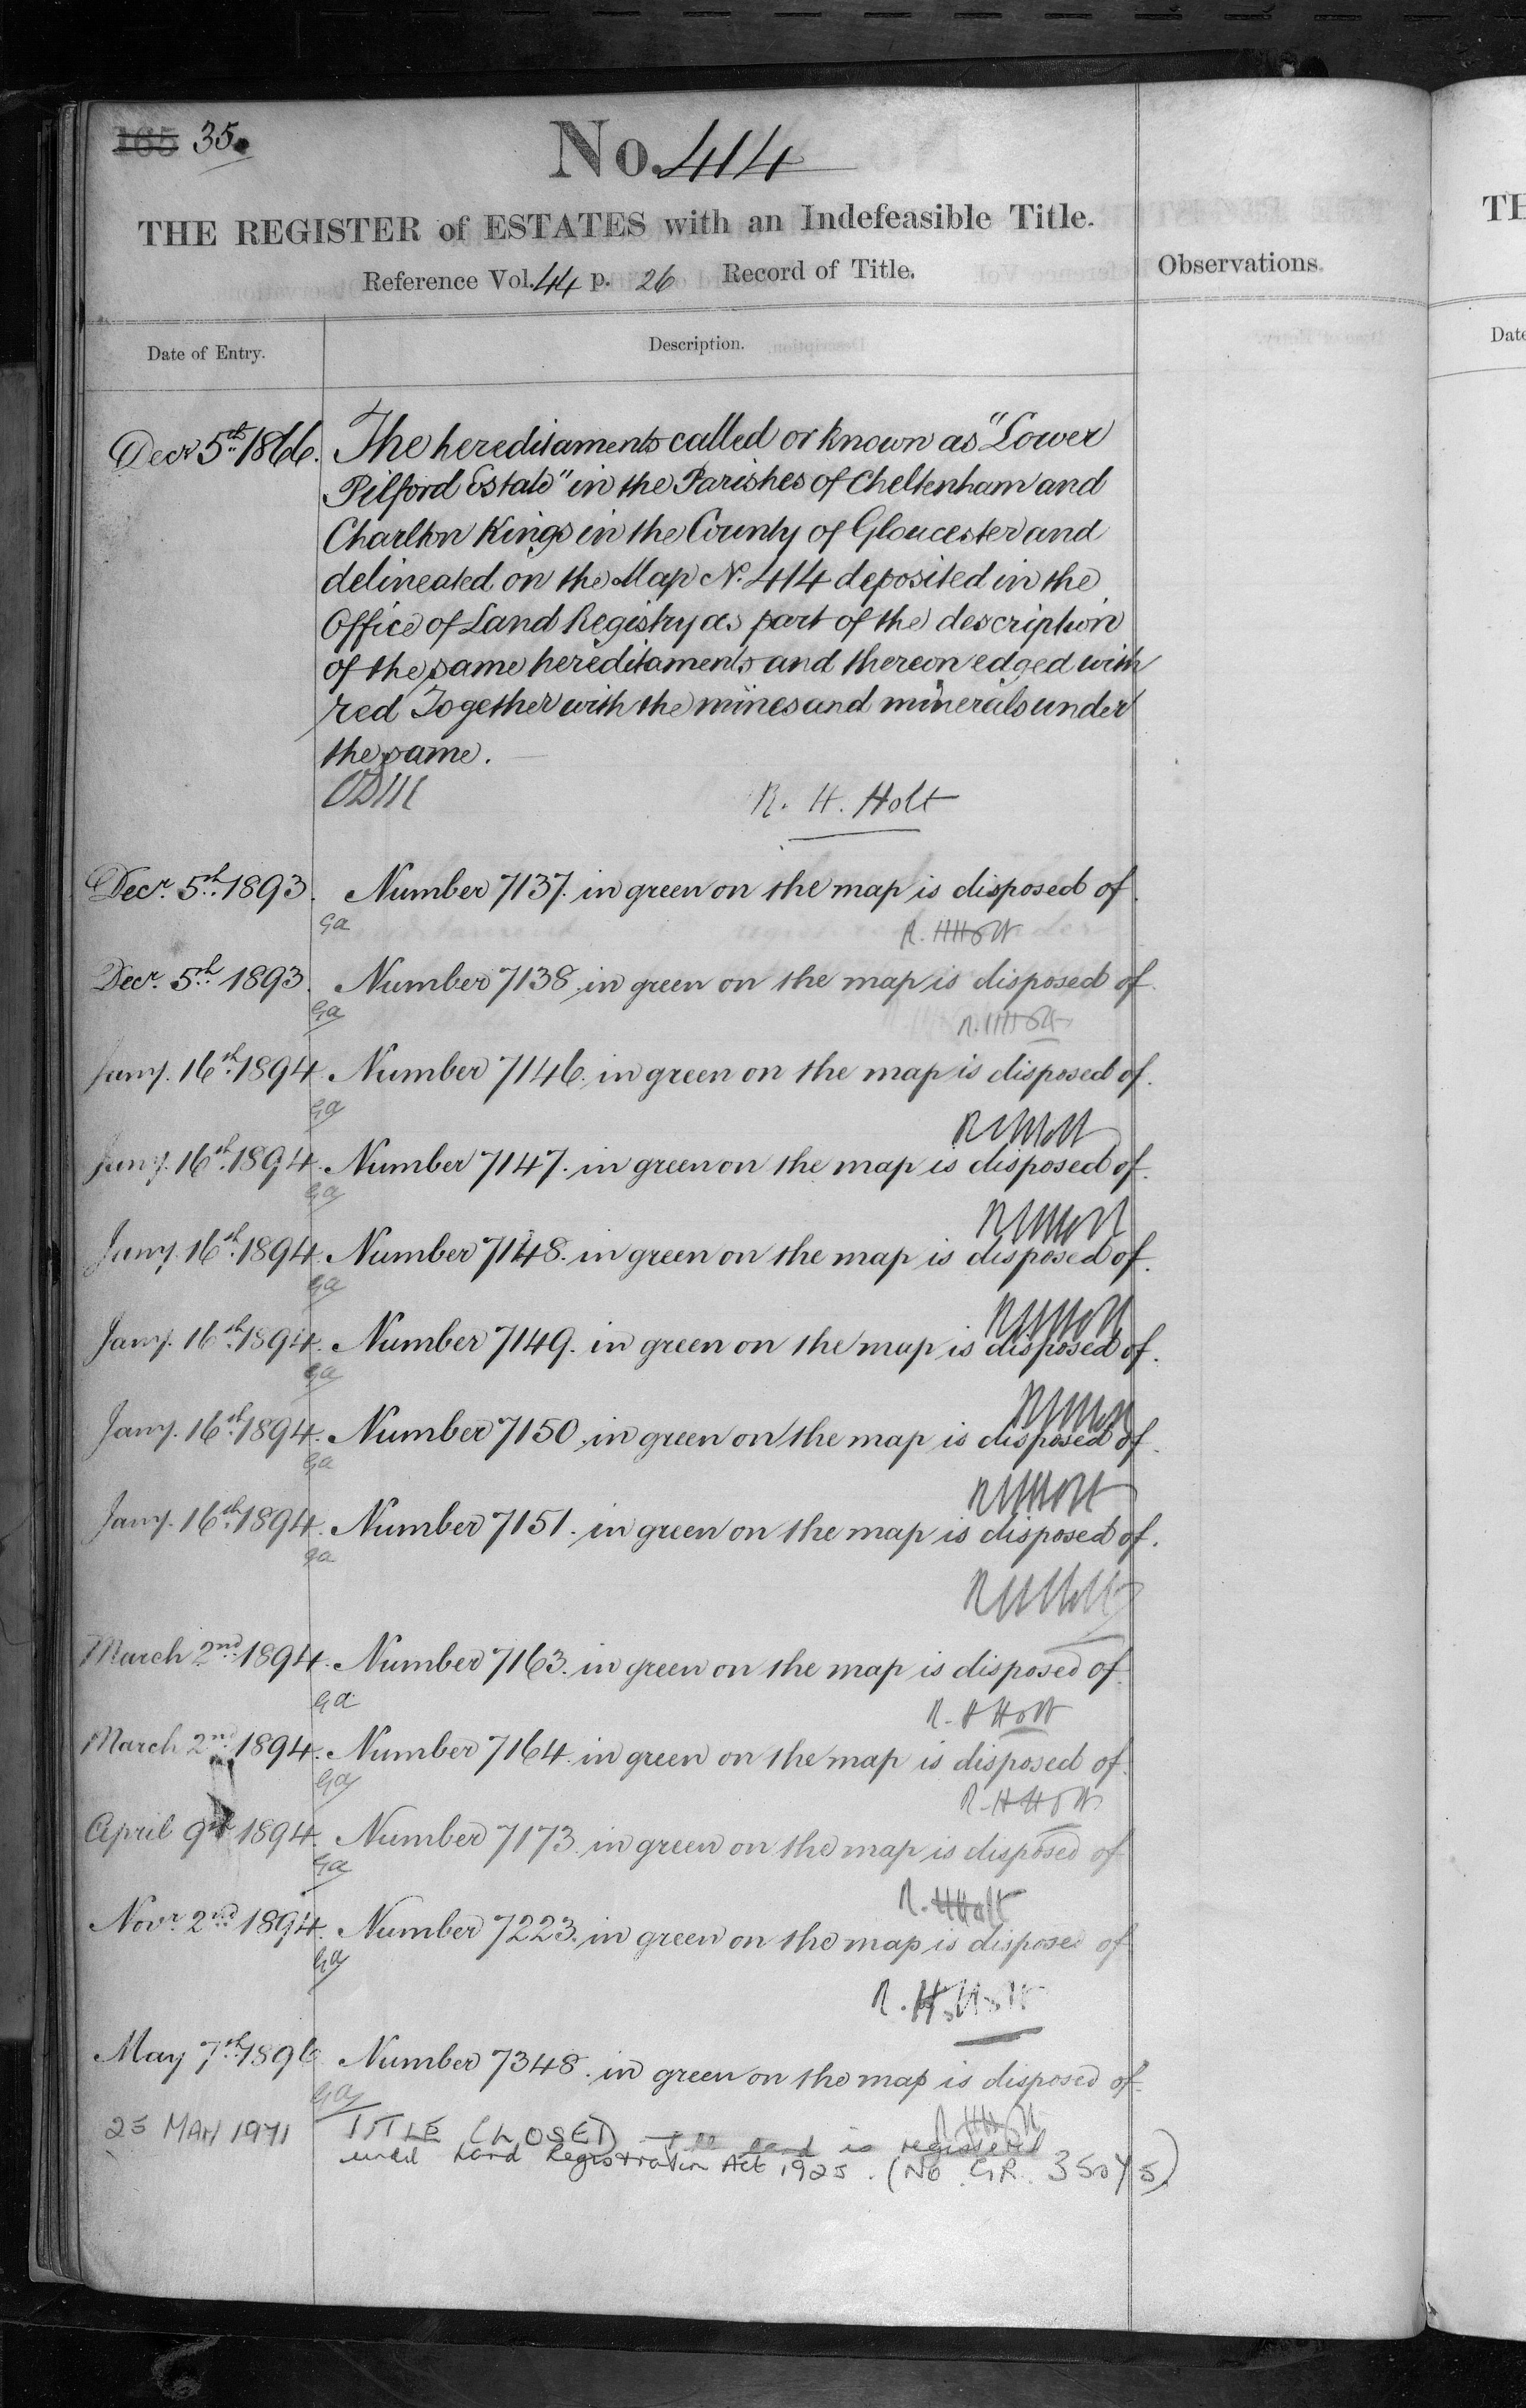 165 35.
No. 414
THE REGISTER of ESTATES with an Indefeasible Title.
Reference Vol. 44 p. 26 Record of Title.
Observations.
Date of Entry.
Description.
Decr 5th 1866. The hereditaments called or known as "Lower
Pilford Estate" in the Parishes of Cheltenham and
Charlton Kings in the County of Gloucester and
delineated on the Map No. 414 deposited in the
Office of Land Registry as part of the description
of the same hereditaments and thereon edged with
red Together with the mines and minerals under
the same.
R. H. Holt
Decr. 5th 1893. Number 7137. in green on the map is disposed of.
Ga
R. H Holt
Decr. 5th 1893. Number 7138. in green on the map is disposed of.
Ga
R. H Holt
Jany. 16th 1894. Number 7146. in green on the map is disposed of.
Ga
R H Holt
Jany. 16th 1894. Number 7147. in green on the map is disposed of.
Ga
R H Holt
Jany. 16th 1894. Number 7148. in green on the map is disposed of.
Ga
R H Holt
Jany. 16th 1894. Number 7149. in green on the map is disposed of.
Ga
R H Holt
Jany. 16th 1894. Number 7150. in green on the map is disposed of.
Ga
R H Holt
Jany. 16th 1894. Number 7151. in green on the map is disposed of.
Ga
R H Holt
March 2nd 1894. Number 7163. in green on the map is disposed of.
Ga
R. H Holt
March 2nd 1894. Number 7164. in green on the map is disposed of.
Ga
R. H Holt
April 9th 1894. Number 7173. in green on the map is disposed of
Ga
R. H Holt
Novr. 2nd 1894. Number 7223. in green on the map is disposed of
Ga
R. H. Holt
May 7th 1896 Number 7348. in green on the map is disposed of.
Ga
R H Holt
25 MAR 1971 TITLE CLOSED land is registered
under Land Registration Act 1925. (No. GR. 35075)
TH
Date